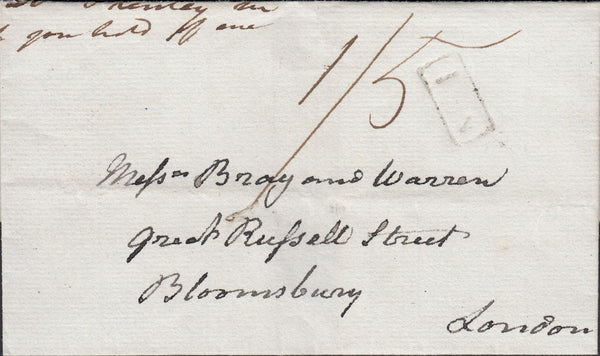 you hold if one
1/5
Messrs Bray and Warren
Great Russell Street
Bloomsbury
London